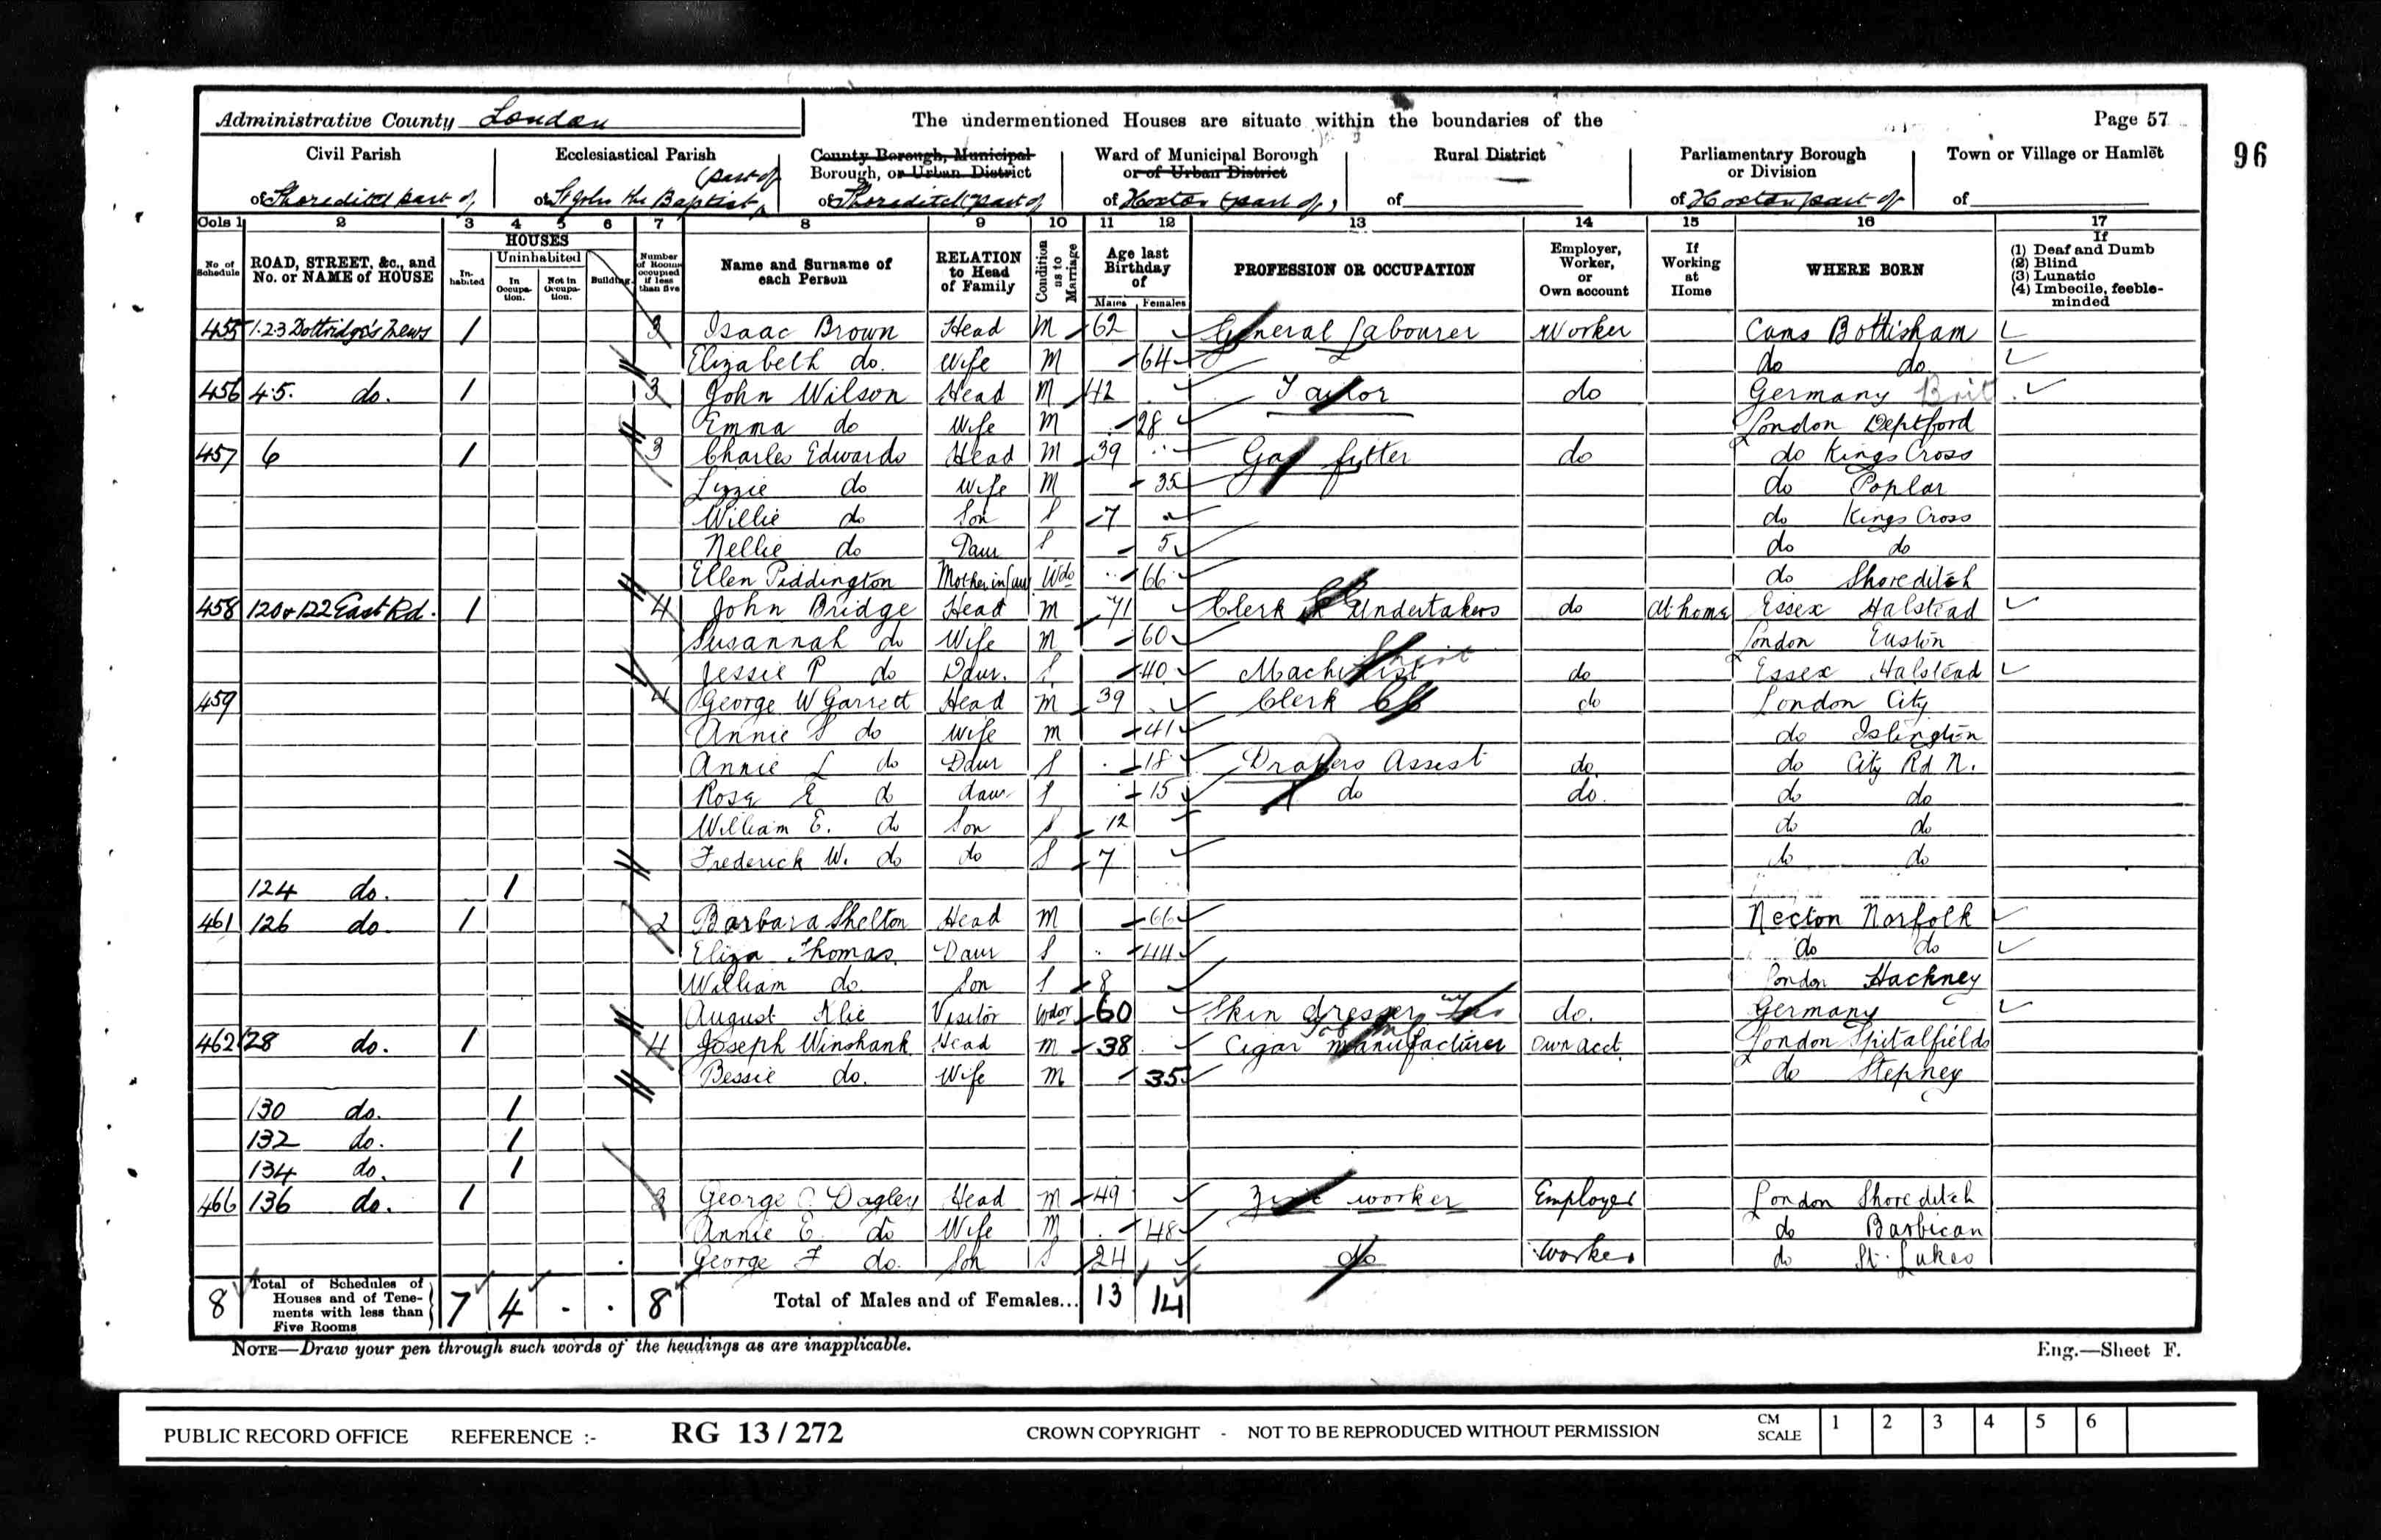 Administrative County London
The undermentioned Houses are situate within the boundaries of the
Page 57
96
Civil Parish
of Shoreditch part of
Ecclesiastical Parish
of St John the Baptist (part of
County Borough, Municipal Borough, or Urban District
of Shoreditch (part of
Ward of Municipal Borough or of Urban District
of Hoxton (part of)
Rural District
of
Parliamentary Borough or Division
of Hoxton part of
Town or Village or Hamlet
of
Cols 1 2 3 4 5 6 7 8 9 10 11 12 13 14 15 16 17
No of Schedule
ROAD, STREET, &c., and No. or NAME of HOUSE
HOUSES
Inhabited
Uninhabited
In Occupation.
Not in Occupation.
Building.
Number of Rooms occupied if less than five
Name and Surname of each Person
RELATION to Head of Family
Condition as to Marriage
Age last Birthday of
Males Females
PROFESSION OR OCCUPATION
Employer, Worker, or Own account
If Working at Home
WHERE BORN
If
(1) Deaf and Dumb
(2) Blind
(3) Lunatic
(4) Imbecile, feeble-minded
455 1.2.3 Dottridge's Mews 1 3 Isaac Brown Head M 62 General Labourer Worker Cams Bottisham
Elizabeth do. Wife M 64 do do.
456 4.5. do. 1 3 John Wilson Head M 42 Tailor do Germany Brit
Emma do Wife M 28 London Deptford
457 6 1 3 Charles Edwards Head M 39 Gas fitter do do Kings Cross
Lizzie do Wife M 35 do Poplar
Willie do Son S 7 do Kings Cross
Nellie do Daur S 5 do do
Ellen Piddington Mother in law Wdo 66 do Shoreditch
458 120 & 122 East Rd. 1 4 John Bridge Head M 71 Clerk Undertakers do At home Essex Halstead
Susannah do Wife M 60 London Euston
Jessie P do Daur. S 40 Machinist do Essex Halstead
459 4 George W Garrett Head M 39 Clerk do London City
Annie S do Wife M 41 do Islington
Annie L do Daur S 18 Drapers Assist do. do City Rd N.
Rose E do daur S 15 do do. do do
William E. do Son S 12 do do
Frederick W. do do S 7 do do
124 do. 1
461 126 do. 1 2 Barbara Shelton Head M 66 Necton Norfolk
Eliza Thomas Daur S 44 do do
William do. Son S 8 London Hackney
August Klie Visitor Wdor 60 Skin dresser do. Germany
462 128 do. 1 4 Joseph Winshank Head M 38 Cigar Manufacturer Own acct. London Spitalfields
Bessie do. Wife M 35 do Stepney
130 do. 1
132 do. 1
134 do. 1
466 136 do. 1 3 George Dagley Head M 49 Zinc worker Employer London Shoreditch
Annie E. do Wife M 48 do Barbican
George F do. Son S 24 do Worker do St. Lukes
8 Total of Schedules of Houses and of Tenements with less than Five Rooms 7 4 - . 8 Total of Males and of Females... 13 14
NOTE—Draw your pen through such words of the headings as are inapplicable.
Eng.—Sheet F.
PUBLIC RECORD OFFICE REFERENCE :- RG 13 / 272 CROWN COPYRIGHT - NOT TO BE REPRODUCED WITHOUT PERMISSION CM SCALE 1 2 3 4 5 6